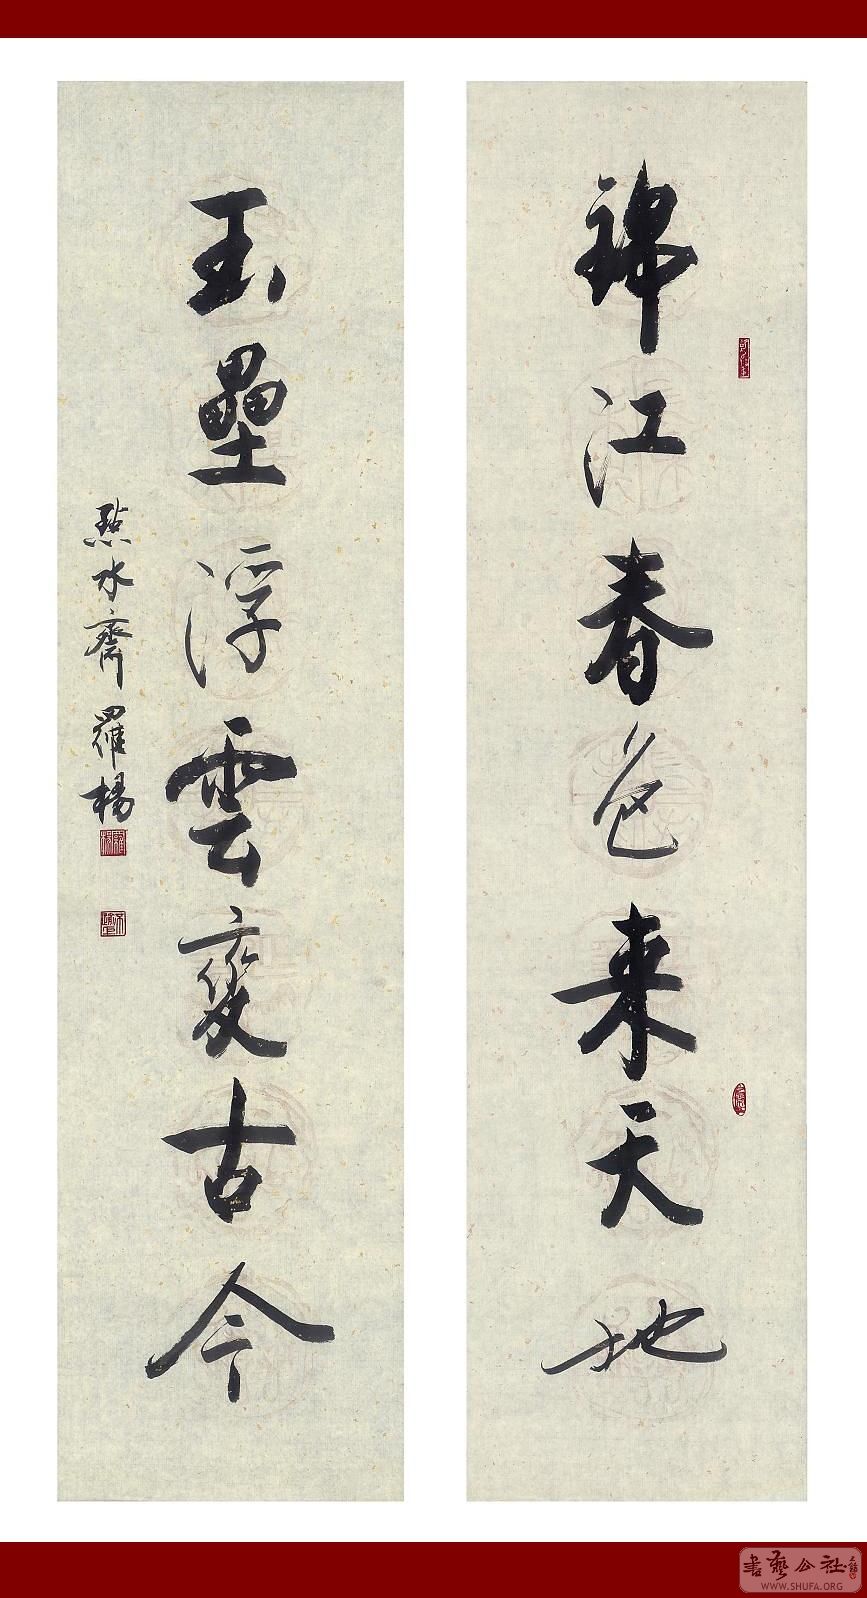 錦江春色来天地
玉壘浮雲變古今
點水齋羅楊
書藝公社
WWW.SHUFA.ORG